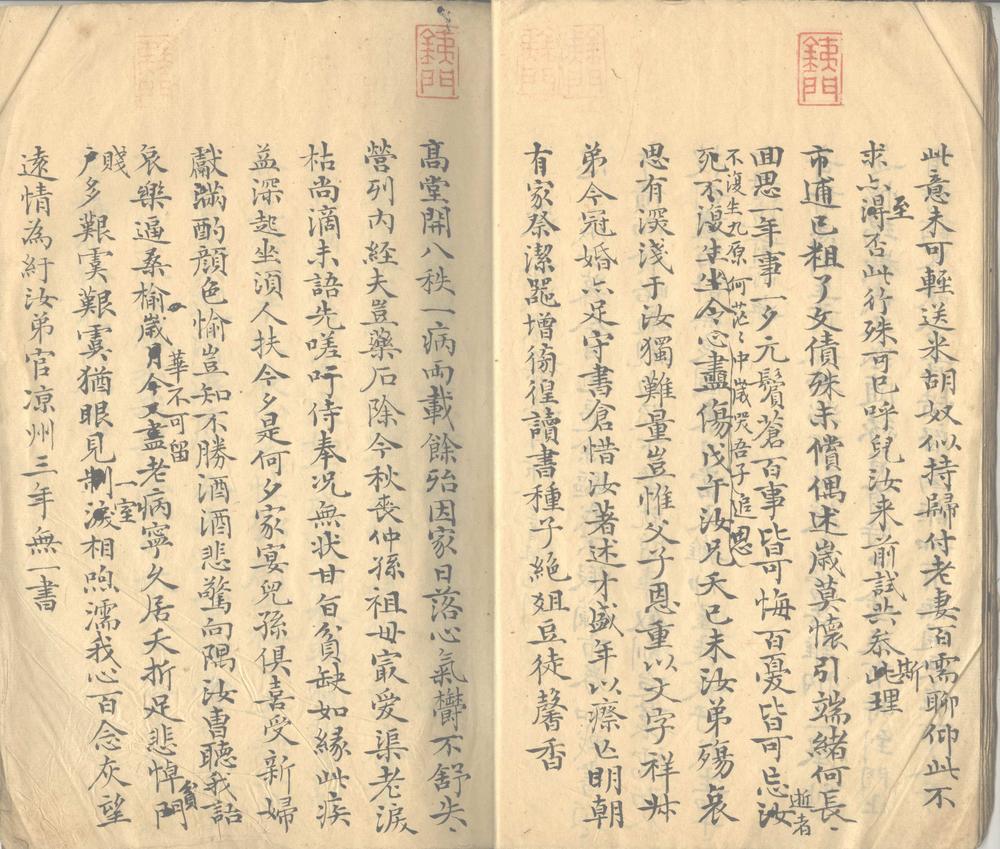 銕門
此意未可輕送米胡奴似持歸付老妻百需聊仰此不
求亦得否此行殊可已呼兒汝来前試共叅此理
至
斯
市逋已粗了文債殊未償偶述歲莫懷引端緒何長〻
回思一年事一夕元鬢蒼百事皆可悔百憂皆可忘汝
逝者
不復生九原何茫〻仲歲哭吾子追思
死不復生坐令心盡傷戊午汝兄夭已未汝弟殤哀
思有深淺于汝獨難量豈惟父子恩重以文字祥
弟今冠婚亦足守書倉惜汝著述才盛年以瘵亡明朝
有家祭潔器增徬徨讀書種子絕俎豆徒馨香
銕門
高堂開八秩一病兩載餘殆因家日落心氣欝不舒失〻
營列內経夫豈藥石除今秋喪仲孫祖母冣愛渠老淚
枯尚滴未語先嗟吁侍奉况無状甘旨貧缺如緣此疾
益深起坐須人扶今夕是何夕家宴兒孫俱喜受新婦
獻滿酌顔色愉豈知不勝酒酒悲驚向隅汝曹聽我語
哀樂逼桑榆歲月今又盡老病寧久居夭折足悲悼門
華不可留
貧
賤
戶多艱虞艱虞猶眼見制淚相呴濡我心百念灰望
一室
遠情為紆汝弟官凉州三年無一書